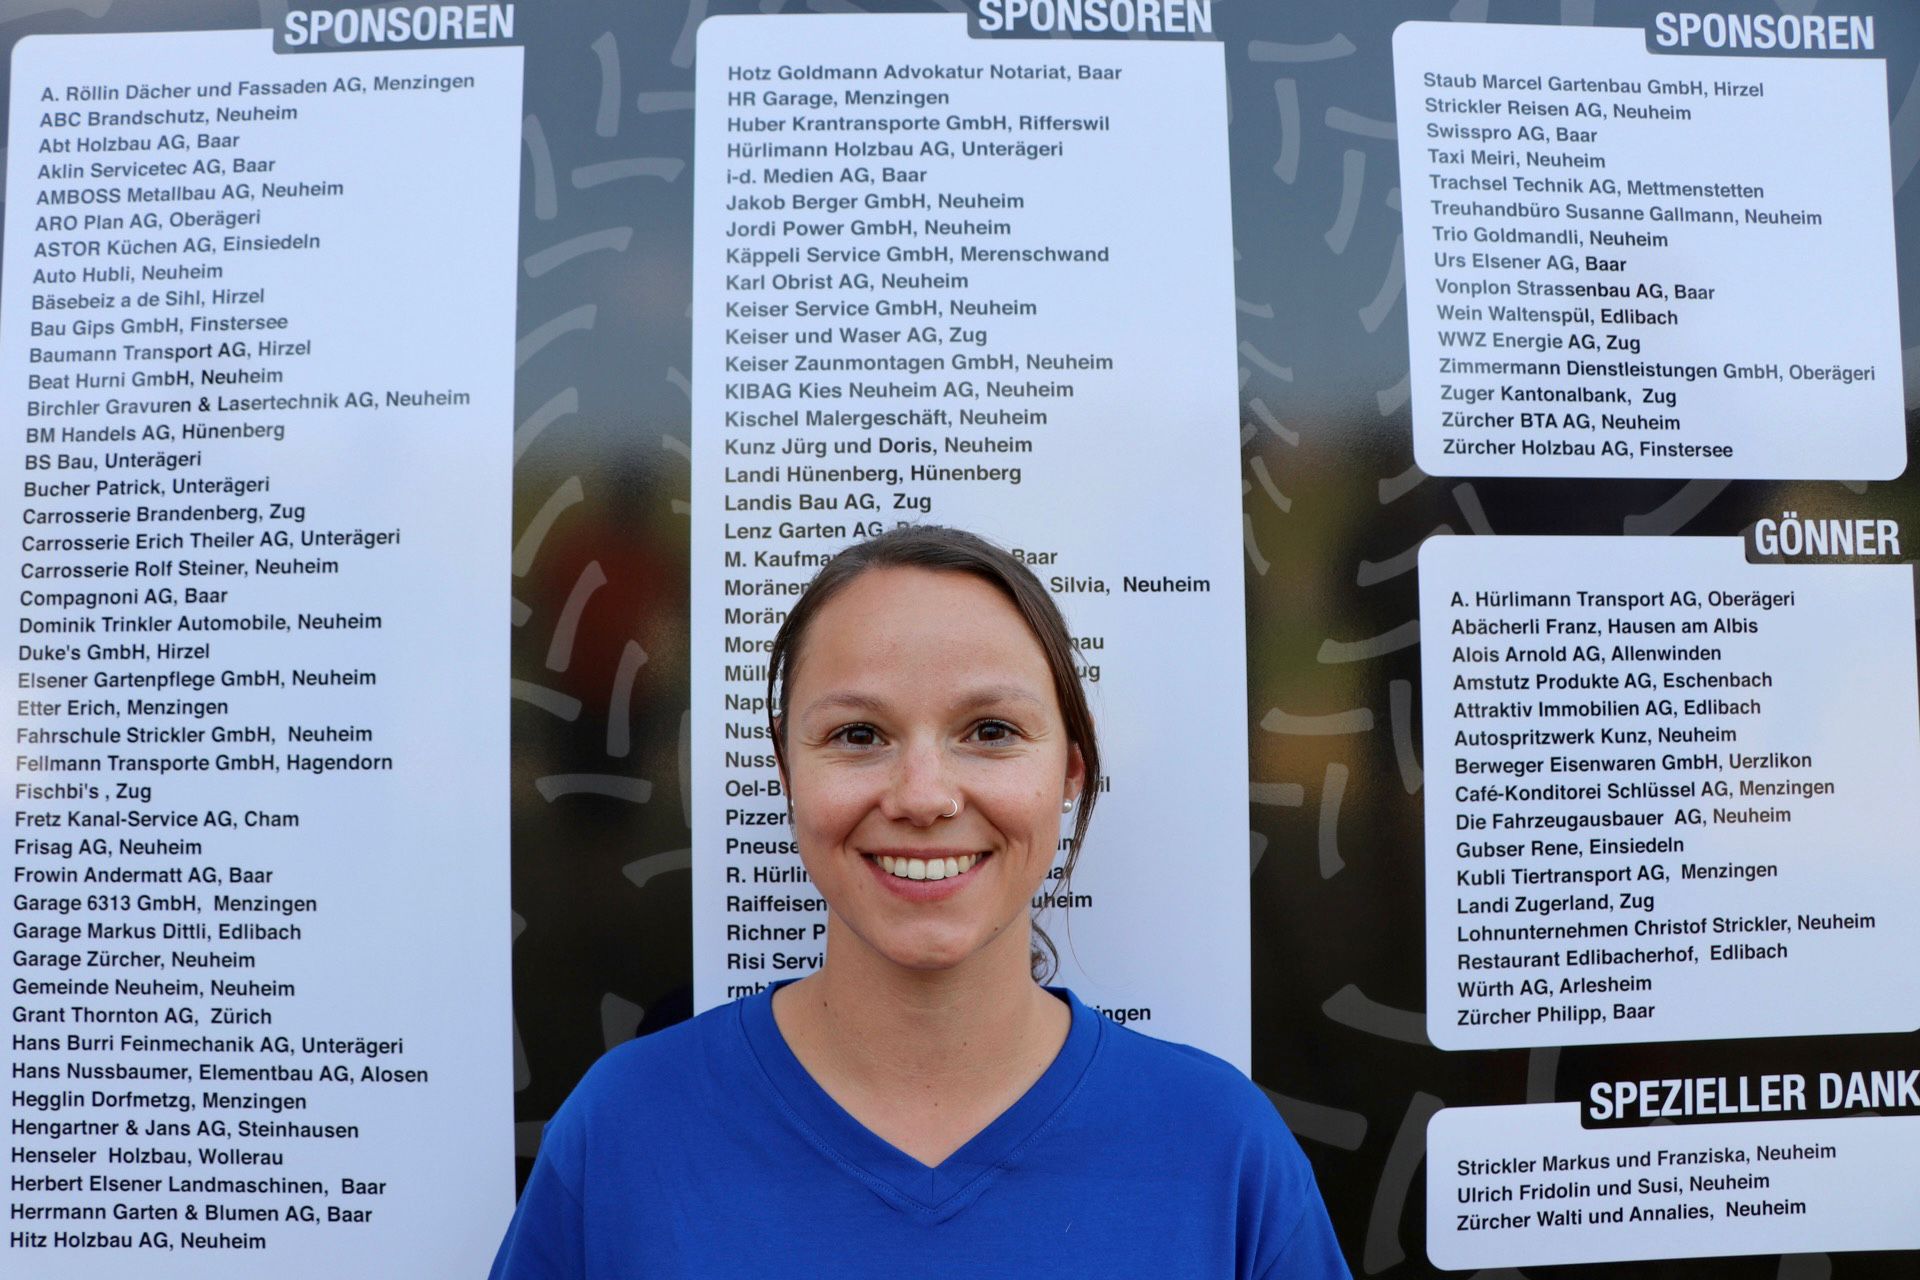 SPONSOREN
A. Röllin Dächer und Fassaden AG, Menzingen
ABC Brandschutz, Neuheim
Abt Holzbau AG, Baar
Aklin Servicetec AG, Baar
AMBOSS Metallbau AG, Neuheim
ARO Plan AG, Oberägeri
ASTOR Küchen AG, Einsiedeln
Auto Hubli, Neuheim
Bäsebeiz a de Sihl, Hirzel
Bau Gips GmbH, Finstersee
Baumann Transport AG, Hirzel
Beat Hurni GmbH, Neuheim
Birchler Gravuren & Lasertechnik AG, Neuheim
BM Handels AG, Hünenberg
BS Bau, Unterägeri
Bucher Patrick, Unterägeri
Carrosserie Brandenberg, Zug
Carrosserie Erich Theiler AG, Unterägeri
Carrosserie Rolf Steiner, Neuheim
Compagnoni AG, Baar
Dominik Trinkler Automobile, Neuheim
Duke's GmbH, Hirzel
Elsener Gartenpflege GmbH, Neuheim
Etter Erich, Menzingen
Fahrschule Strickler GmbH, Neuheim
Fellmann Transporte GmbH, Hagendorn
Fischbi's , Zug
Fretz Kanal-Service AG, Cham
Frisag AG, Neuheim
Frowin Andermatt AG, Baar
Garage 6313 GmbH, Menzingen
Garage Markus Dittli, Edlibach
Garage Zürcher, Neuheim
Gemeinde Neuheim, Neuheim
Grant Thornton AG, Zürich
Hans Burri Feinmechanik AG, Unterägeri
Hans Nussbaumer, Elementbau AG, Alosen
Hegglin Dorfmetzg, Menzingen
Hengartner & Jans AG, Steinhausen
Henseler Holzbau, Wollerau
Herbert Elsener Landmaschinen, Baar
Herrmann Garten & Blumen AG, Baar
Hitz Holzbau AG, Neuheim
SPONSOREN
Hotz Goldmann Advokatur Notariat, Baar
HR Garage, Menzingen
Huber Krantransporte GmbH, Rifferswil
Hürlimann Holzbau AG, Unterägeri
i-d. Medien AG, Baar
Jakob Berger GmbH, Neuheim
Jordi Power GmbH, Neuheim
Käppeli Service GmbH, Merenschwand
Karl Obrist AG, Neuheim
Keiser Service GmbH, Neuheim
Keiser und Waser AG, Zug
Keiser Zaunmontagen GmbH, Neuheim
KIBAG Kies Neuheim AG, Neuheim
Kischel Malergeschäft, Neuheim
Kunz Jürg und Doris, Neuheim
Landi Hünenberg, Hünenberg
Landis Bau AG, Zug
Lenz Garten AG,
M. Baar
Silvia, Neuheim
R.
Raiffeisen
Richner
Risi
SPONSOREN
Staub Marcel Gartenbau GmbH, Hirzel
Strickler Reisen AG, Neuheim
Swisspro AG, Baar
Taxi Meiri, Neuheim
Trachsel Technik AG, Mettmenstetten
Treuhandbüro Susanne Gallmann, Neuheim
Trio Goldmandli, Neuheim
Urs Elsener AG, Baar
Vonplon Strassenbau AG, Baar
Wein Waltenspül, Edlibach
WWZ Energie AG, Zug
Zimmermann Dienstleistungen GmbH, Oberägeri
Zuger Kantonalbank, Zug
Zürcher BTA AG, Neuheim
Zürcher Holzbau AG, Finstersee
GÖNNER
A. Hürlimann Transport AG, Oberägeri
Abächerli Franz, Hausen am Albis
Alois Arnold AG, Allenwinden
Amstutz Produkte AG, Eschenbach
Attraktiv Immobilien AG, Edlibach
Autospritzwerk Kunz, Neuheim
Berweger Eisenwaren GmbH, Uerzlikon
Café-Konditorei Schlüssel AG, Menzingen
Die Fahrzeugausbauer AG, Neuheim
Gubser Rene, Einsiedeln
Kubli Tiertransport AG, Menzingen
Landi Zugerland, Zug
Lohnunternehmen Christof Strickler, Neuheim
Restaurant Edlibacherhof, Edlibach
Würth AG, Arlesheim
Zürcher Philipp, Baar
SPEZIELLER DANK
Strickler Markus und Franziska, Neuheim
Ulrich Fridolin und Susi, Neuheim
Zürcher Walti und Annalies, Neuheim